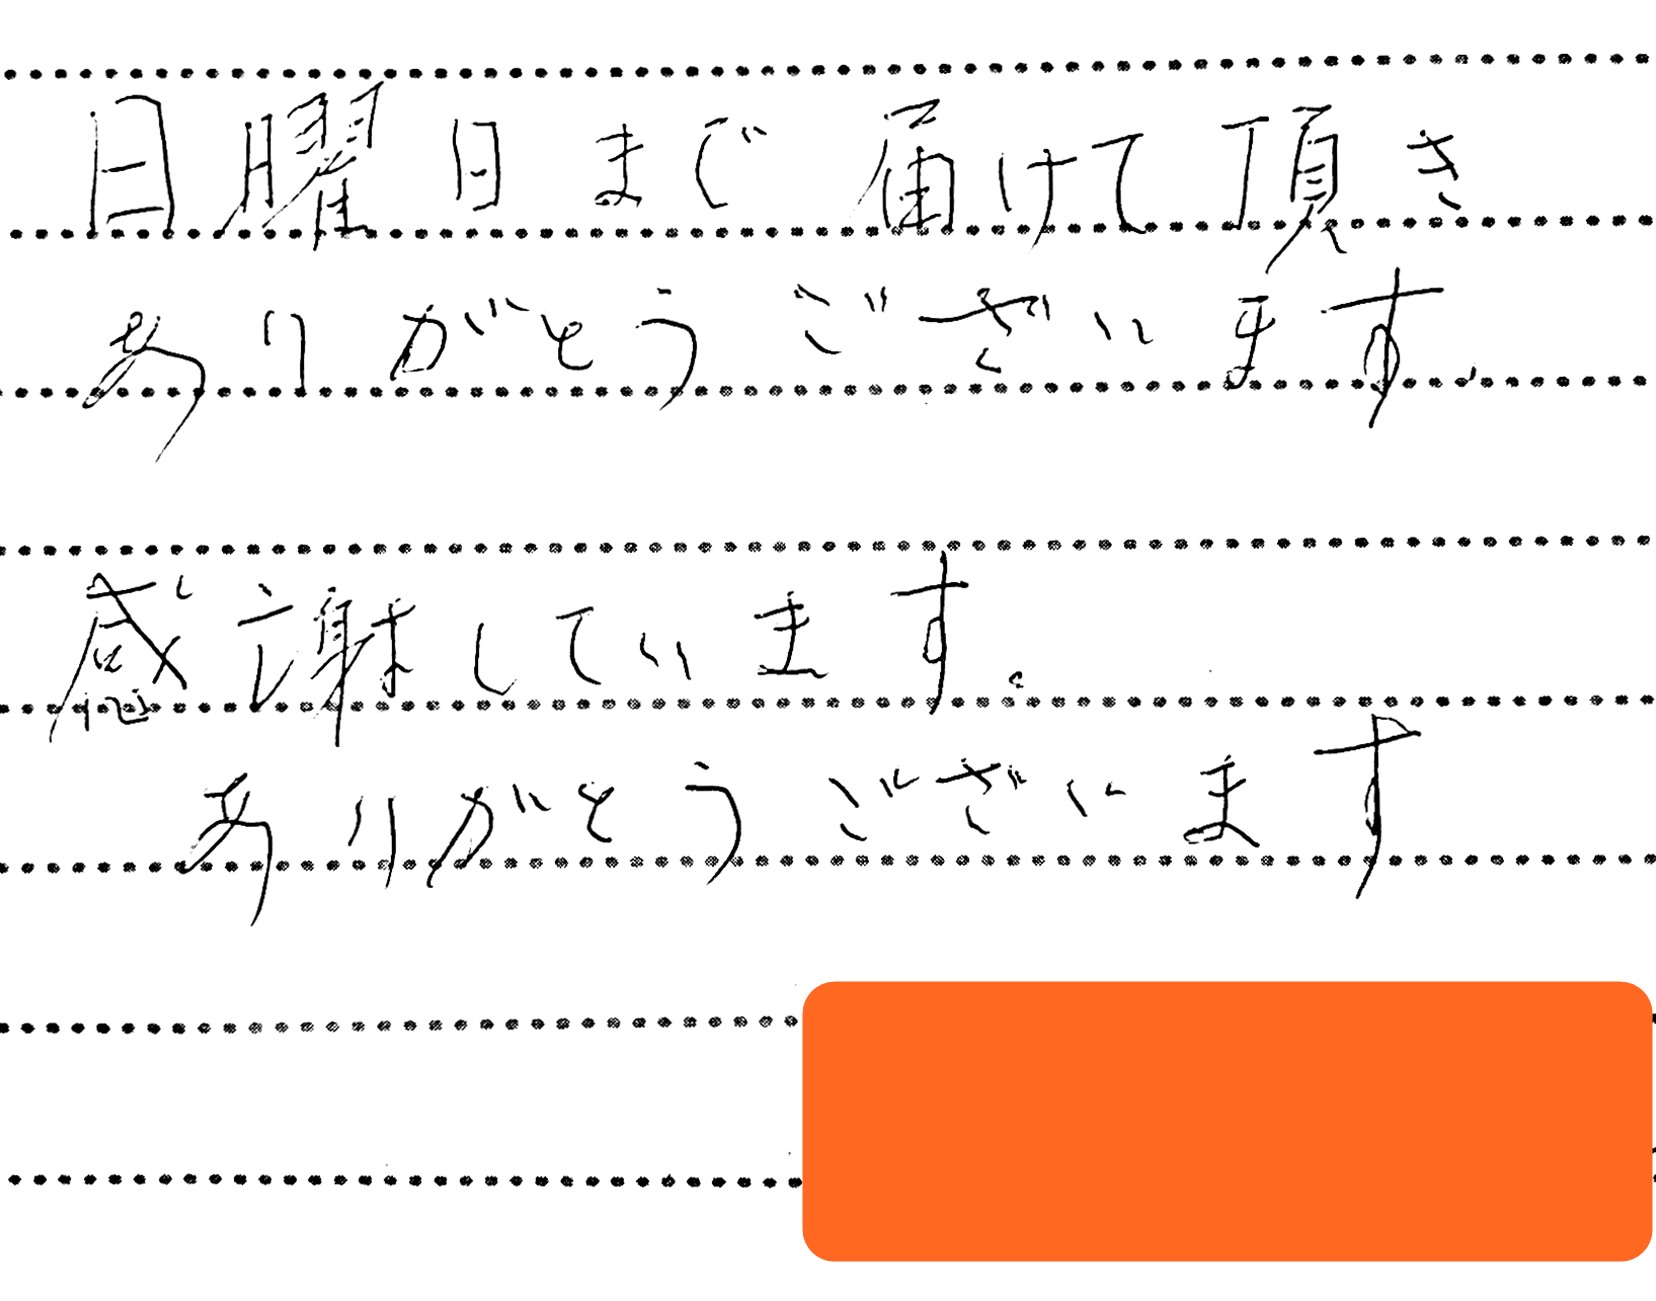 日曜日まで届けて頂き
ありがとうございます。
感謝しています。
ありがとうございます